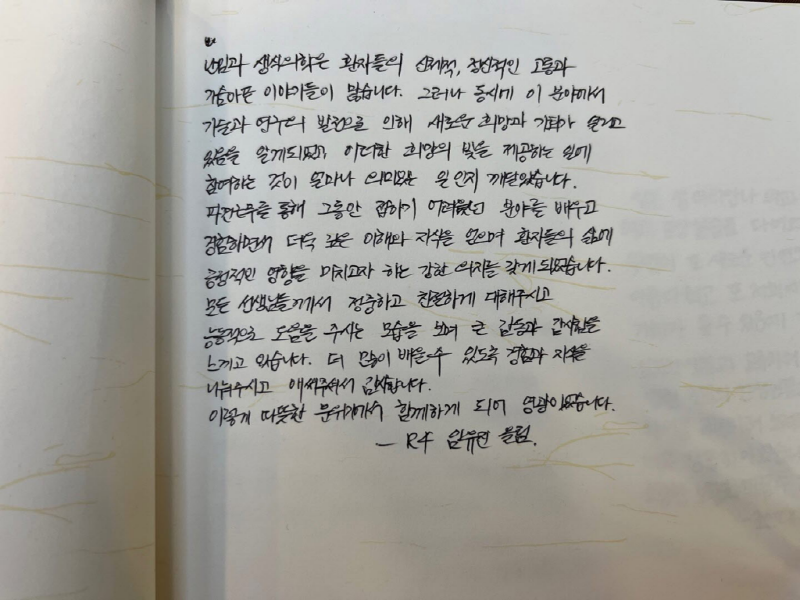 난임과 생식의학은 환자들의 신체적, 정신적인 고통과
가슴아픈 이야기들이 많습니다. 그러나 동시에 이 분야에서
기술과 연구의 발전으로 의해 새로운 희망과 기회가 열리고
있음을 알게되었고, 이러한 희망의 빛을 제공하는 일에
참여하는 것이 얼마나 의미있는 일인지 깨달았습니다.
파견근무를 통해 그동안 접하기 어려웠던 분야를 배우고
경험하면서 더욱 깊은 이해와 지식을 얻으며 환자들의 삶에
긍정적인 영향을 미치고자 하는 강한 의지를 갖게 되었습니다.
모든 선생님들께서 정중하고 친절하게 대해주시고
능동적으로 도움을 주시는 모습을 보며 큰 감동과 감사함을
느끼고 있습니다. 더 많이 배울 수 있도록 경험과 지식을
나눠주시고 애써주셔서 감사합니다.
이렇게 따뜻한 분위기에서 함께하게 되어 영광이었습니다.
— R4 올림.